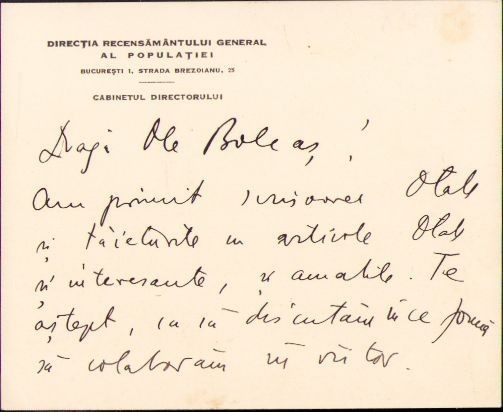 DIRECȚIA RECENSĂMÂNTULUI GENERAL
AL POPULAȚIEI
BUCUREȘTI I, STRADA BREZOIANU, 25
CABINETUL DIRECTORULUI
Dragă Ole Boleaș,!
Am primit scrisoarea
și tăieturile cu articole
și interesante, și amabile. Te
aștept, ca să discutăm în ce formă
să colaborăm în viitor.